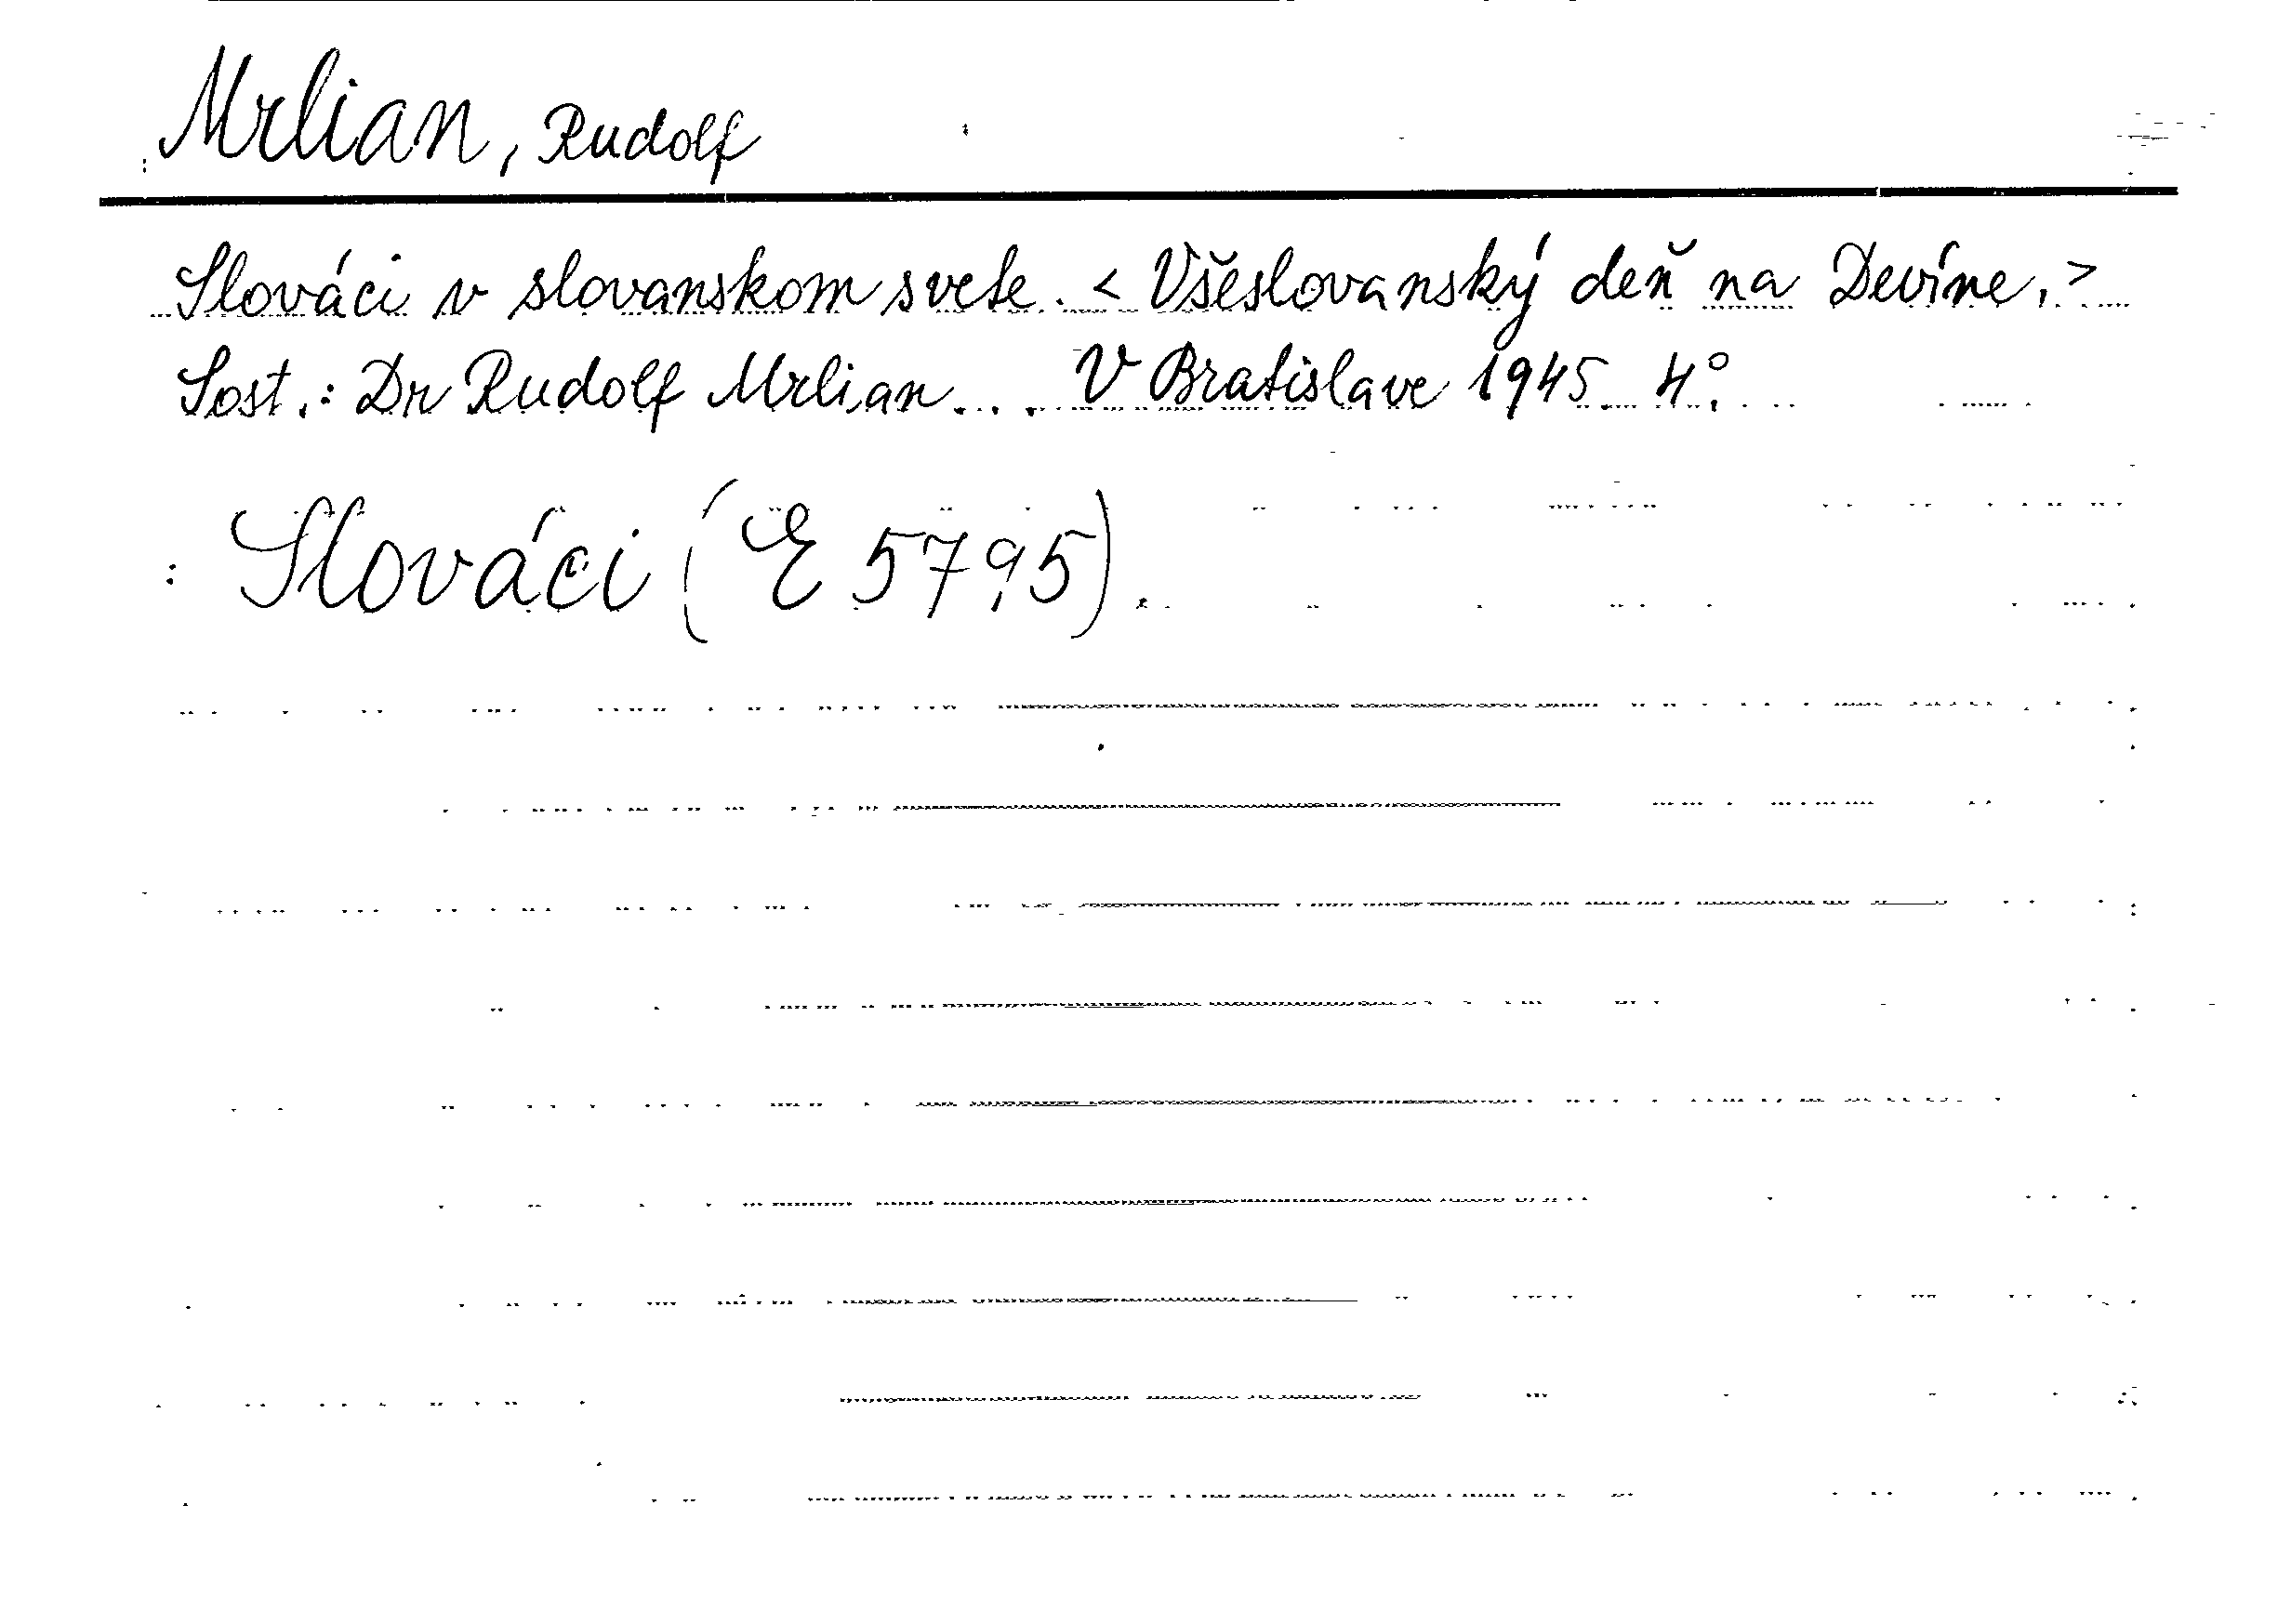 Mrlian, Rudolf
Slováci v slovanskom svete. < Všeslovanský deň na Devíne. >
Sost.: Dr Rudolf Mrlian... V Bratislave 1945. 4°.
Slováci (E 5795).